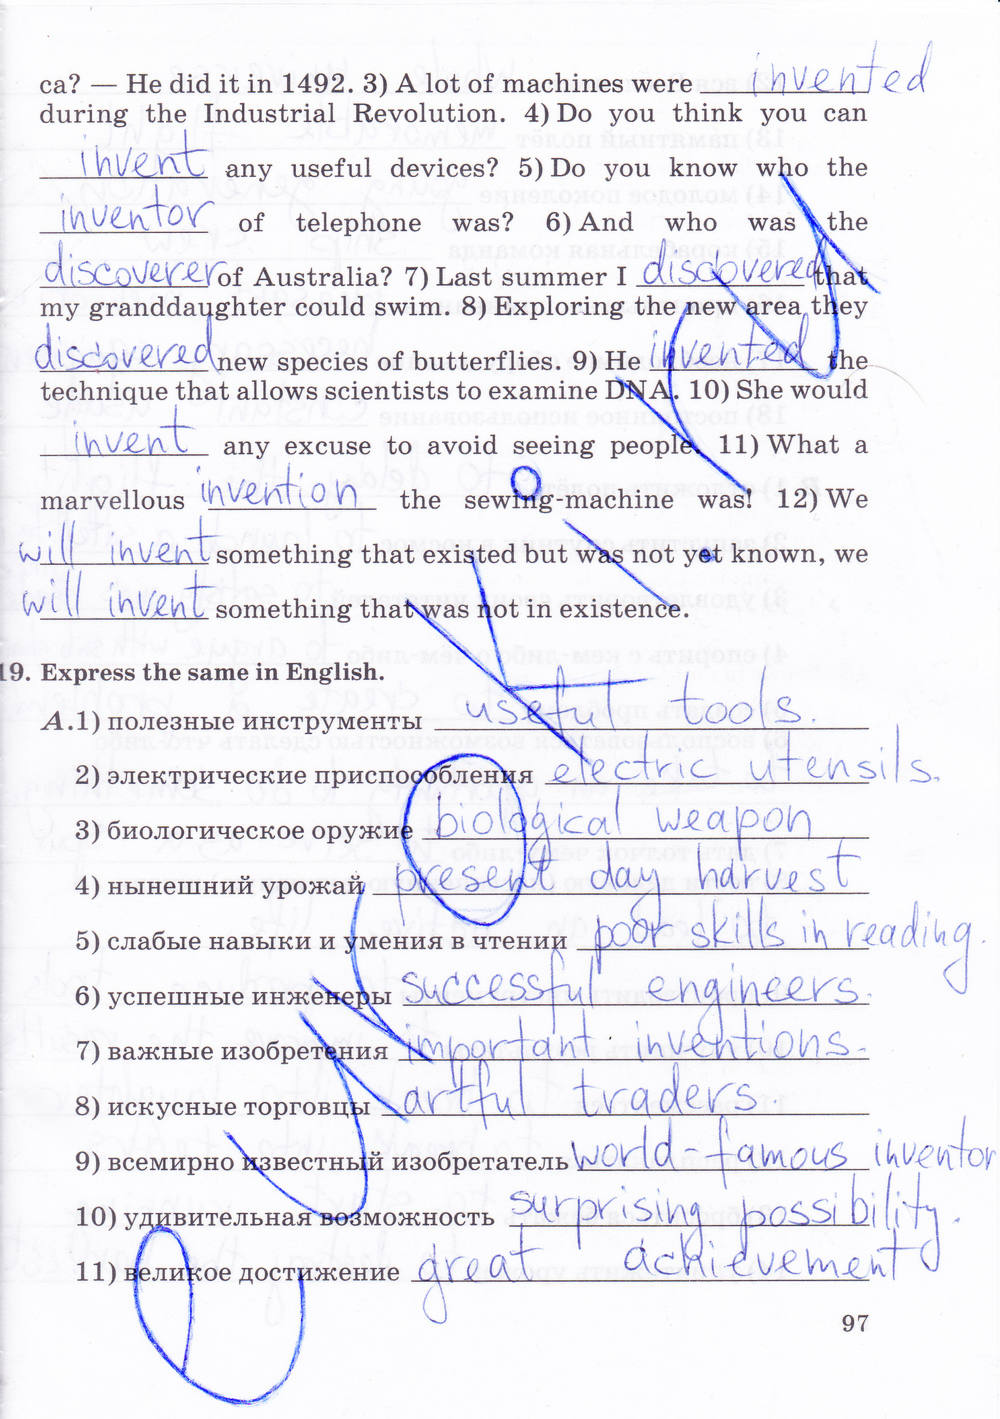 ca? — He did it in 1492. 3) A lot of machines were invented
during the Industrial Revolution. 4) Do you think you can
invent any useful devices? 5) Do you know who the
inventor of telephone was? 6) And who was the
discoverer of Australia? 7) Last summer I discovered that
my granddaughter could swim. 8) Exploring the new area they
discovered new species of butterflies. 9) He invented the
technique that allows scientists to examine DNA. 10) She would
invent any excuse to avoid seeing people. 11) What a
marvellous invention the sewing-machine was! 12) We
will invent something that existed but was not yet known, we
will invent something that was not in existence.
19. Express the same in English.
A.1) полезные инструменты useful tools.
2) электрические приспособления electric utensils.
3) биологическое оружие biological weapon
4) нынешний урожай present day harvest
5) слабые навыки и умения в чтении poor skills in reading.
6) успешные инженеры successful engineers.
7) важные изобретения important inventions.
8) искусные торговцы artful traders.
9) всемирно известный изобретатель world-famous inventor
10) удивительная возможность surprising possibility.
11) великое достижение great achievement
97